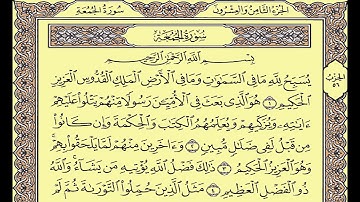 الجزء الثامن والعشرون سورة الجمعة
سورة الجمعة
بسم الله الرحمن الرحيم
يُسَبِّحُ لِلَّهِ مَا فِي السَّمَٰوَٰتِ وَمَا فِي الْأَرْضِ الْمَلِكِ الْقُدُّوسِ الْعَزِيزِ
الْحَكِيمِ ١ هُوَ الَّذِي بَعَثَ فِي الْأُمِّيِّينَ رَسُولًا مِّنْهُمْ يَتْلُوا عَلَيْهِمْ
ءَايَٰتِهِ وَيُزَكِّيهِمْ وَيُعَلِّمُهُمُ الْكِتَٰبَ وَالْحِكْمَةَ وَإِن كَانُوا
مِن قَبْلُ لَفِي ضَلَٰلٍ مُّبِينٍ ٢ وَءَاخَرِينَ مِنْهُمْ لَمَّا يَلْحَقُوا بِهِمْ
وَهُوَ الْعَزِيزُ الْحَكِيمُ ٣ ذَٰلِكَ فَضْلُ اللَّهِ يُؤْتِيهِ مَن يَشَاءُ وَاللَّهُ
ذُو الْفَضْلِ الْعَظِيمِ ٤ مَثَلُ الَّذِينَ حُمِّلُوا التَّوْرَىٰةَ ثُمَّ لَمْ